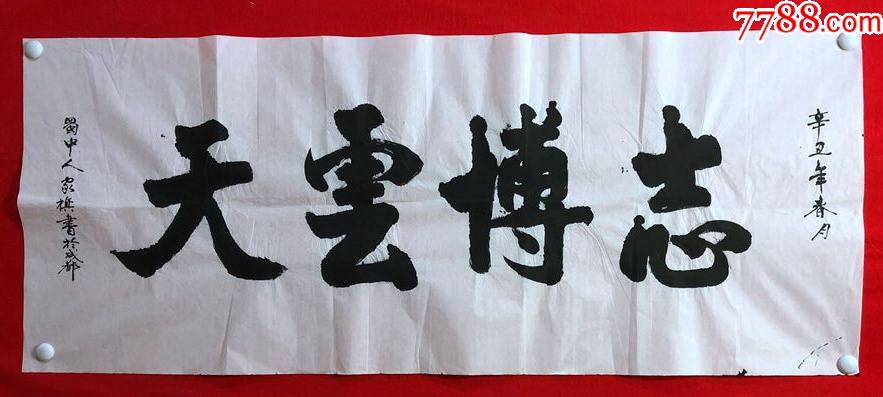 7788.com
辛丑年春月
志博雲天
蜀中人家樵書於成都